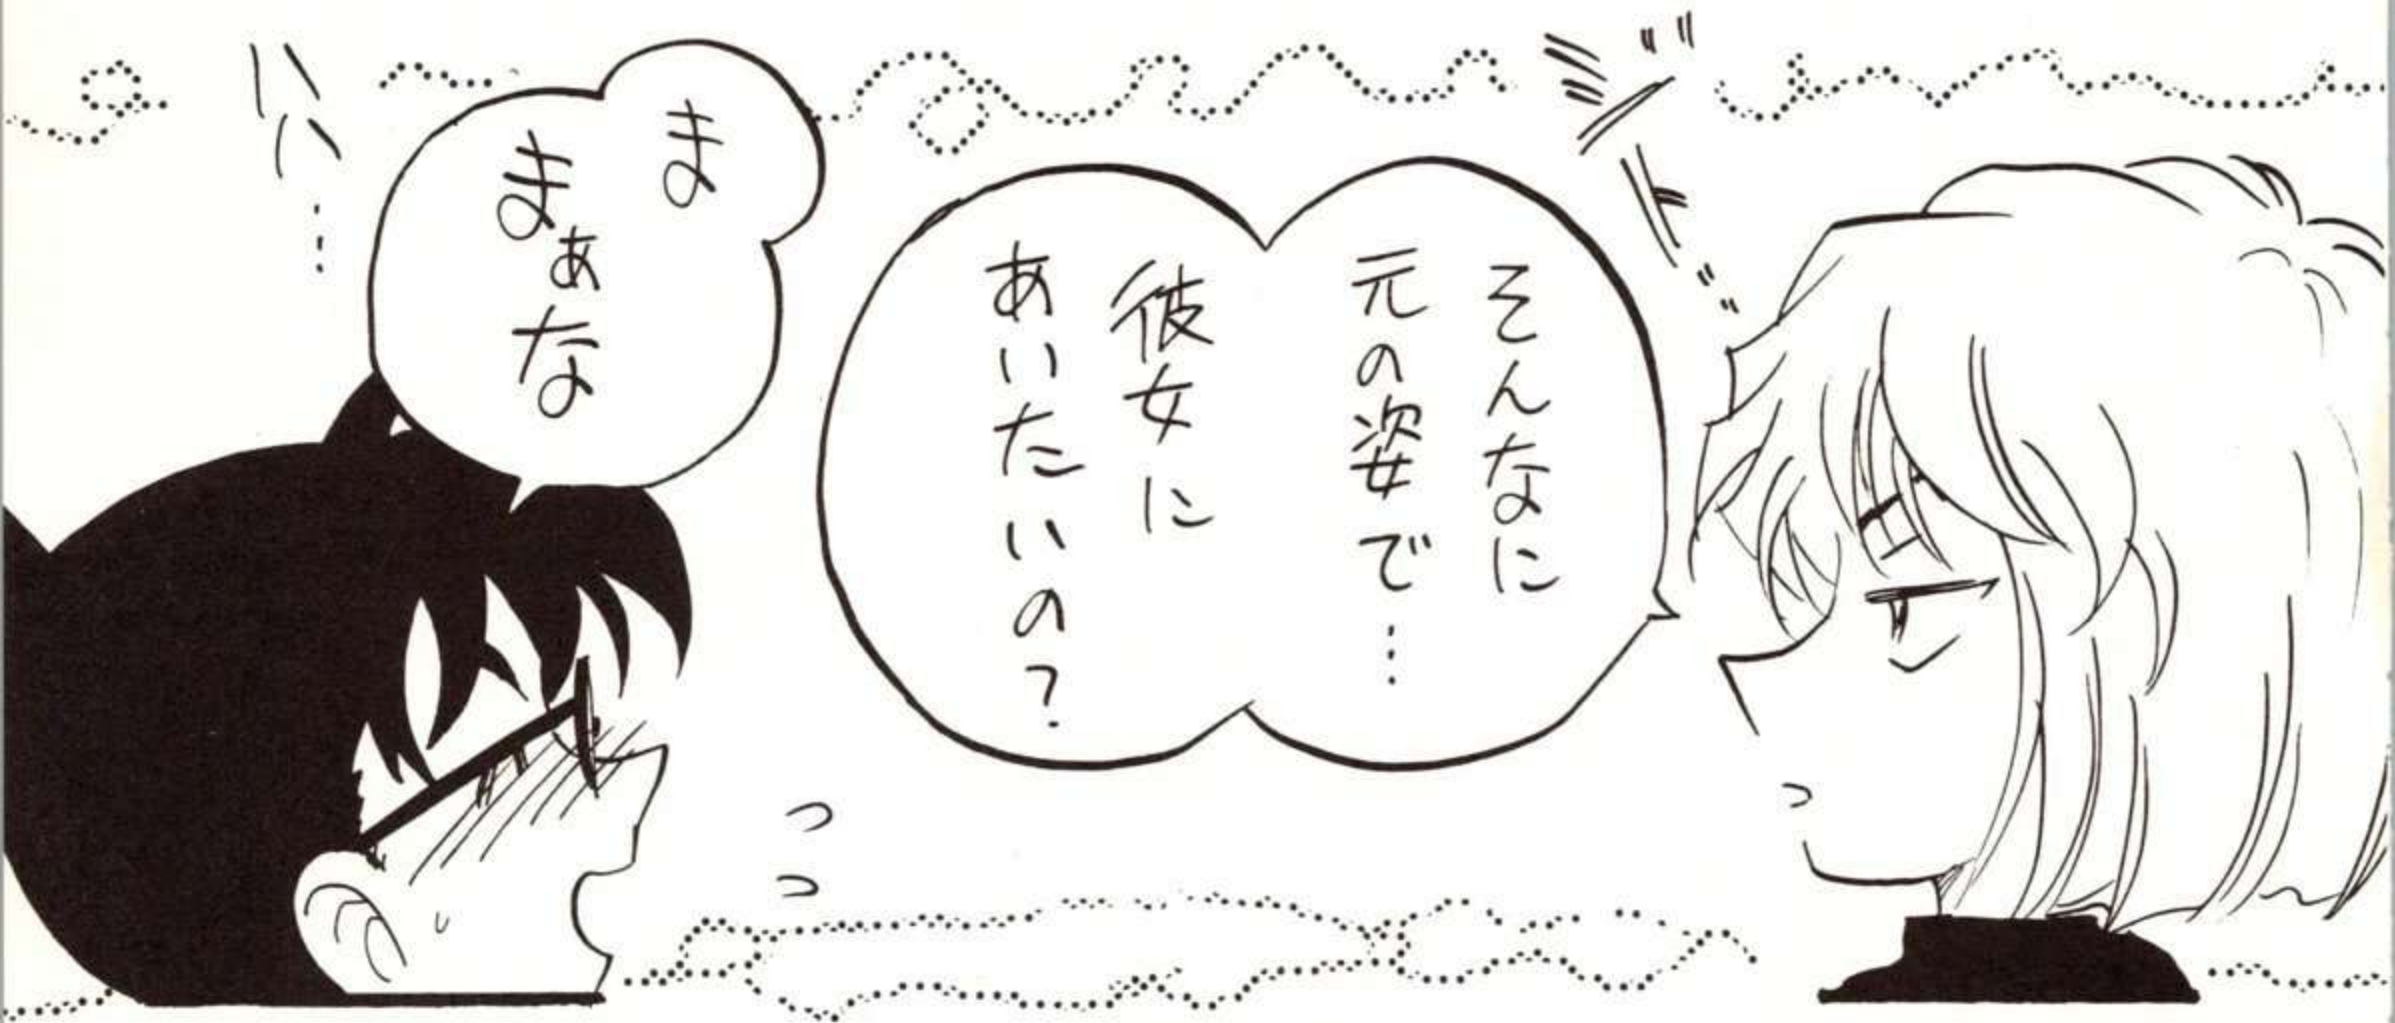 ジト…
そんなに
元の姿で…
彼女に
あいたいの?
ま
まぁな
ハハ…